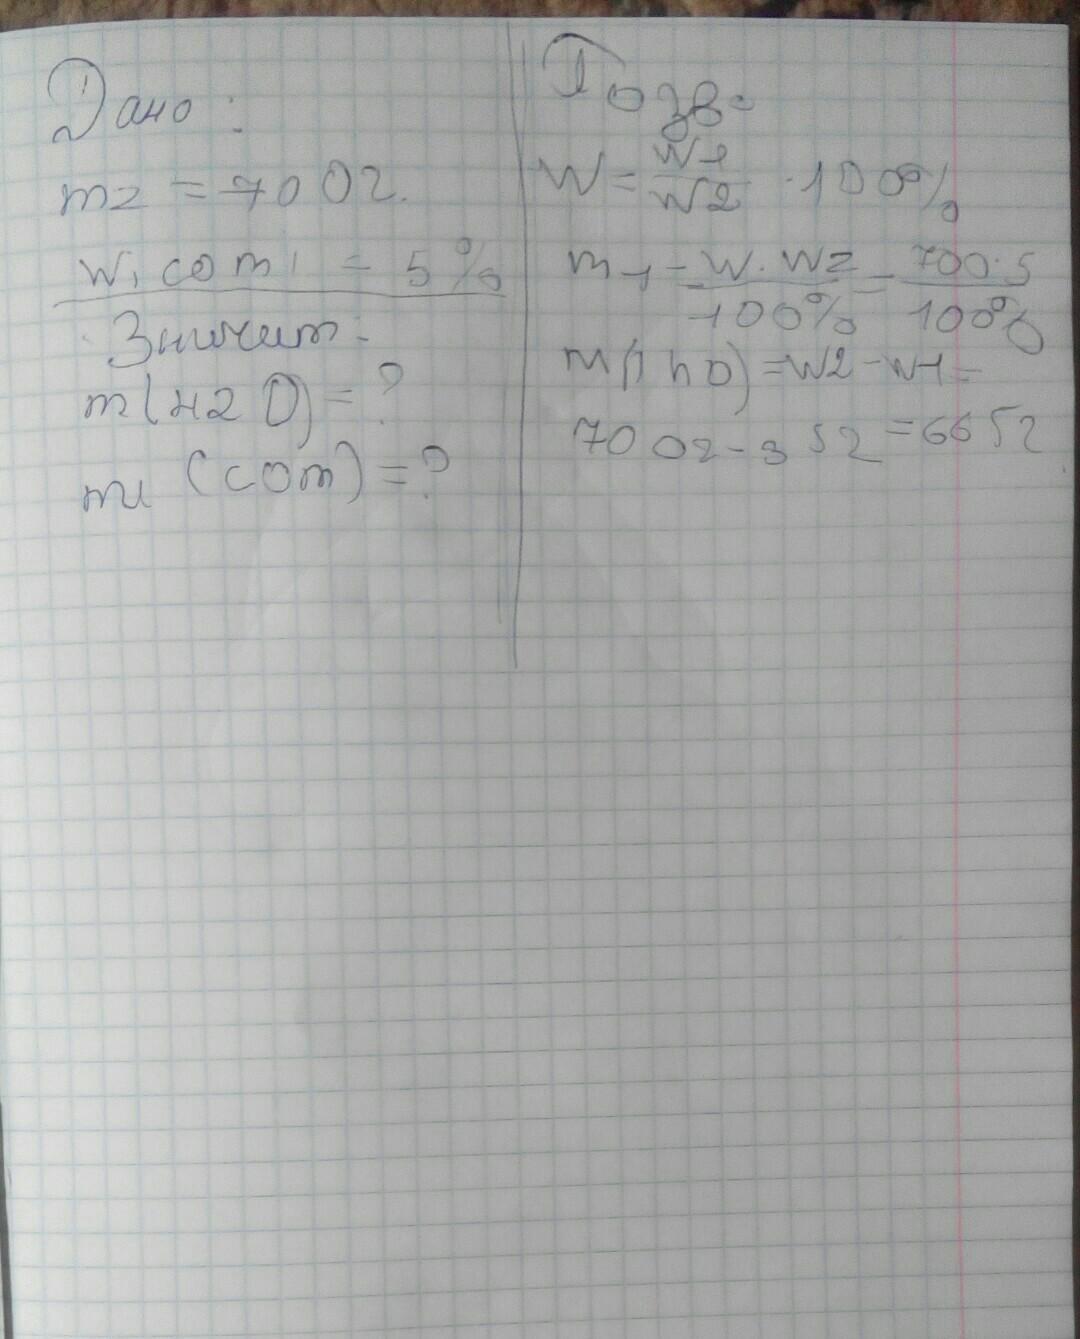 Дано:
m2 = 700г.
W1 com1 = 5%
Значит:
m(H2O) = ?
m1 (com) = ?
Розв.
W = W1/W2 · 100%
m1 = W·W2/100% = 700·5/100%
m(1h0) = W2 - W1 =
700г - 35г = 665г